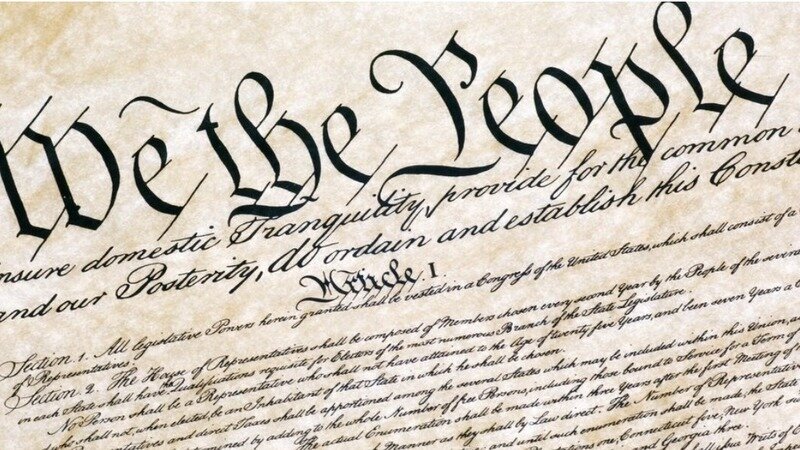 We the People
insure domestic Tranquility, provide for the common
and our Posterity, do ordain and establish this Const
Article I.
Section 1. All legislative Powers herein granted shall be vested in a Congress of the United States, which shall consist of a
of Representatives.
Section 2. The House of Representatives shall be composed of Members chosen every second Year by the People of the several
in each State shall have the Qualifications requisite for Electors of the most numerous Branch of the State Legislature.
No Person shall be a Representative who shall not have attained to the Age of twenty five Years, and been seven Years a C
who shall not, when elected, be an Inhabitant of that State in which he shall be chosen.
Representatives and direct Taxes shall be apportioned among the several States which may be included within this Union, an
determined by adding to the whole Number of free Persons, including those bound to Service for a Term of Y
The actual Enumeration shall be made within three Years after the first Meeting of
Manner as they shall by Law direct. The Number of Representatives
and until such enumeration shall be made, the State
Plantations one, Connecticut five, New York six
and Georgia three.
shall issue Writs of